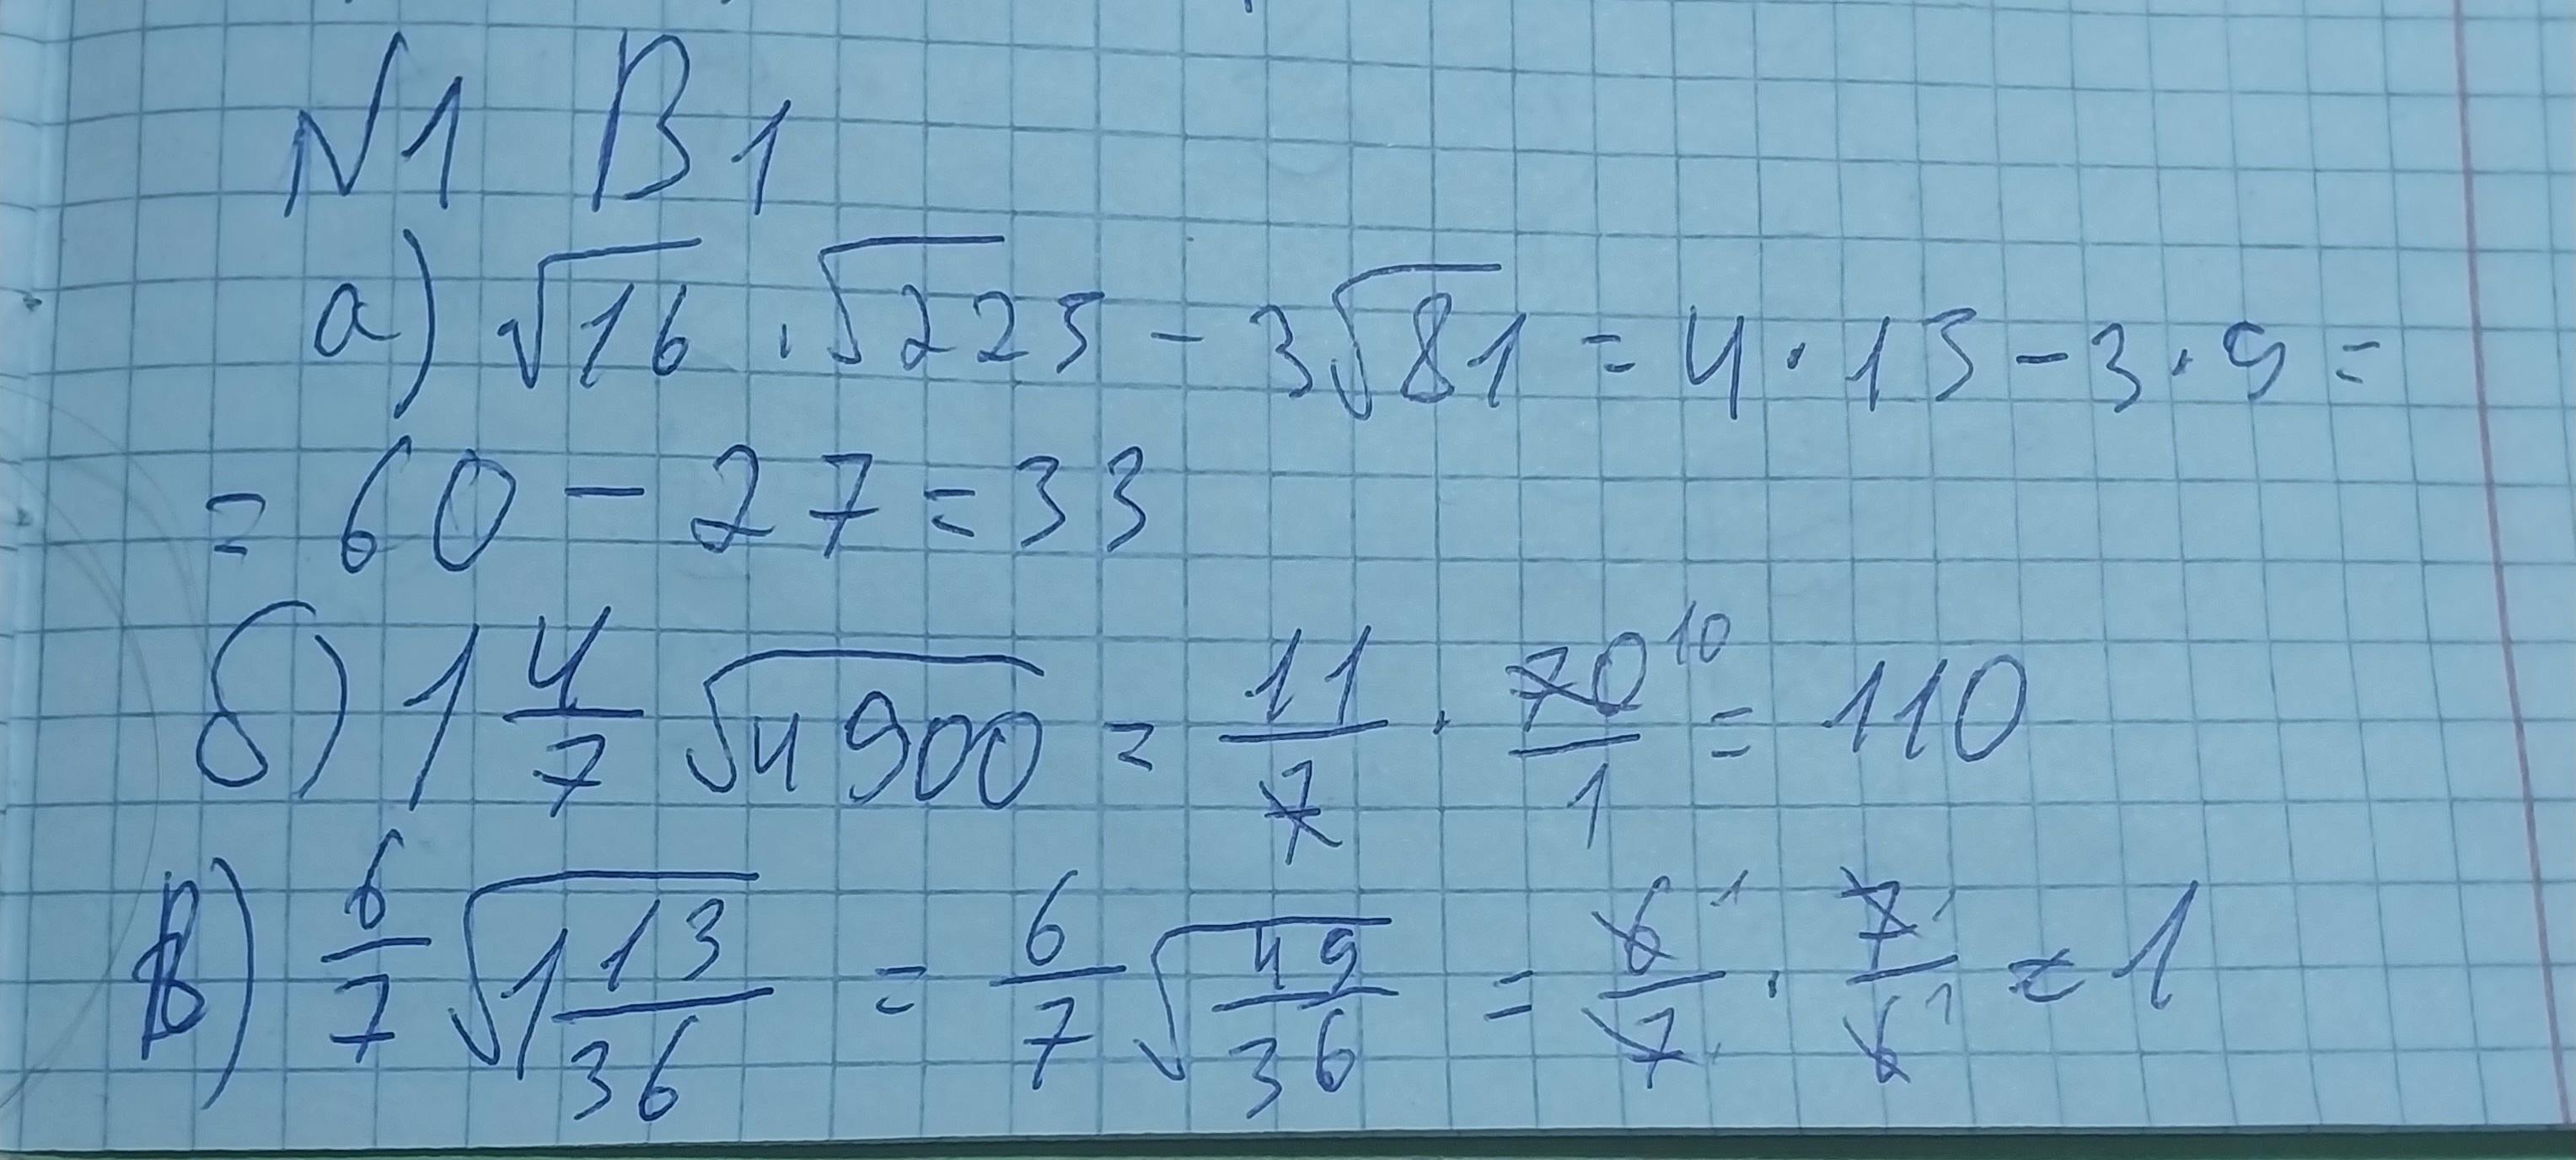 №1 В1
а) √16 · √225 - 3√81 = 4 · 15 - 3 · 9 =
= 60 - 27 = 33
б) 1 4/7 √4900 = 11/7 · 70/1 10 = 110
В) 6/7 √(1 13/36) = 6/7 √(49/36) = 6/7 · 7/6 = 1